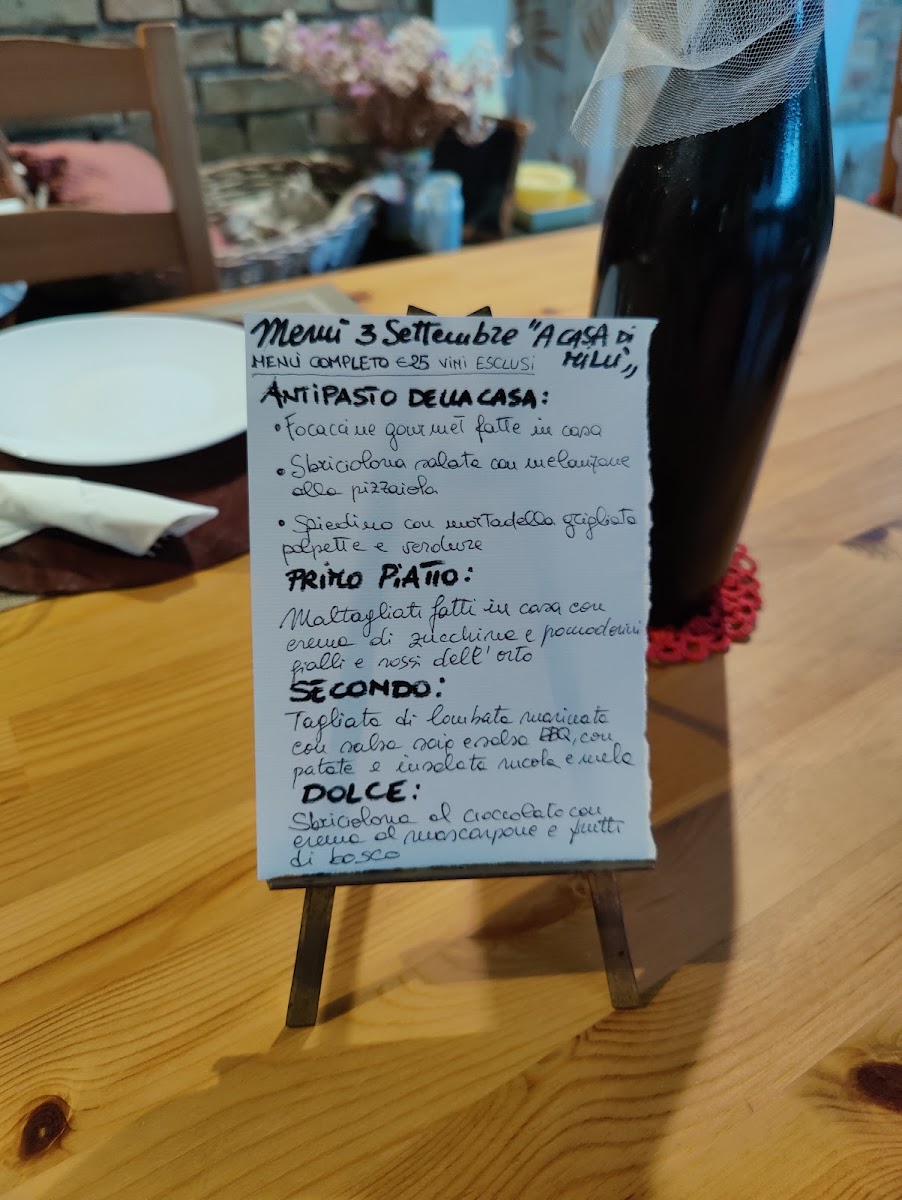 Menù 3 Settembre "A CASA DI
MILLÙ"
MENÙ COMPLETO €25 VINI ESCLUSI
ANTIPASTO DELLA CASA:
• Focaccine gourmet fatte in casa
• Sbriciolona salata con melanzane
alla pizzaiola
• Spiedino con mortadella grigliata
polpette e verdure
PRIMO PIATTO:
Maltagliati fatti in casa con
crema di zucchine e pomodorini
gialli e rossi dell'orto
SECONDO:
Tagliata di lombata marinata
con salsa soia e salsa BBQ, con
patate e insalata rucola e mela
DOLCE:
Sbriciolona al cioccolato con
crema al mascarpone e frutti
di bosco